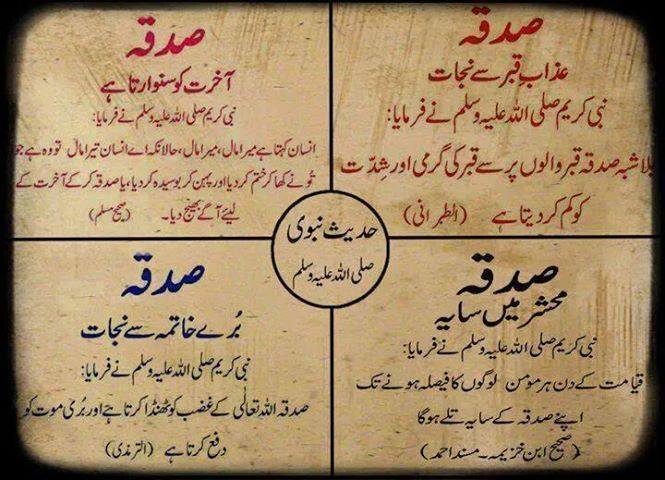 صدقہ
عذابِ قبر سے نجات
نبی کریم صلی اللہ علیہ وسلم نے فرمایا:
بلا شبہ صدقہ قبر والوں پر سے قبر کی گرمی اور شِدّت
کو کم کر دیتا ہے (الطبرانی)
صدقہ
آخرت کو سنوارتا ہے
نبی کریم صلی اللہ علیہ وسلم نے فرمایا:
انسان کہتا ہے میرا مال، میرا مال، حالانکہ اے انسان تیرا مال تو وہ ہے جو
تُو نے کھا کر ختم کر دیا اور پہن کر بوسیدہ کر دیا، یا صدقہ کر کے آخرت کے
لیئے آگے بھیج دیا۔ (صحیح مسلم)
حدیث نبوی
صلی اللہ علیہ وسلم
صدقہ
محشر میں سایہ
نبی کریم صلی اللہ علیہ وسلم نے فرمایا:
قیامت کے دن ہر مؤمن لوگوں کا فیصلہ ہونے تک
اپنے صدقہ کے سایہ تلے ہوگا
(صحیح ابن خزیمہ۔ مسند احمد)
صدقہ
بُرے خاتمہ سے نجات
نبی کریم صلی اللہ علیہ وسلم نے فرمایا:
صدقہ اللہ تعالٰی کے غضب کو ٹھنڈا کرتا ہے اور بُری موت کو
دفع کرتا ہے (الترمذی)